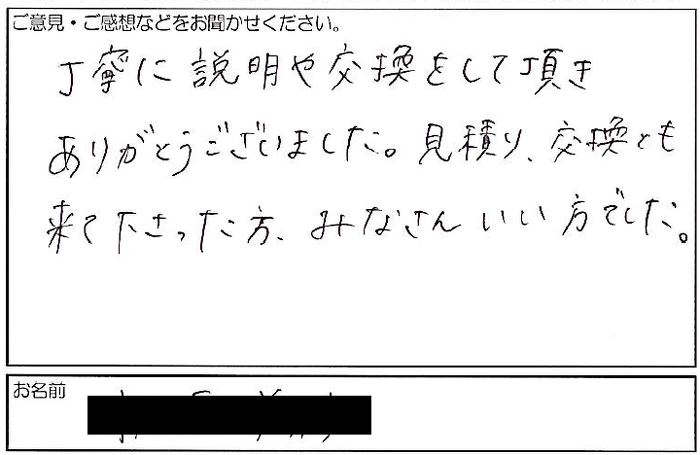 ご意見・ご感想などをお聞かせください。
丁寧に説明や交換をして頂き
ありがとうございました。見積り、交換とも
来て下さった方、みなさんいい方でした。
お名前